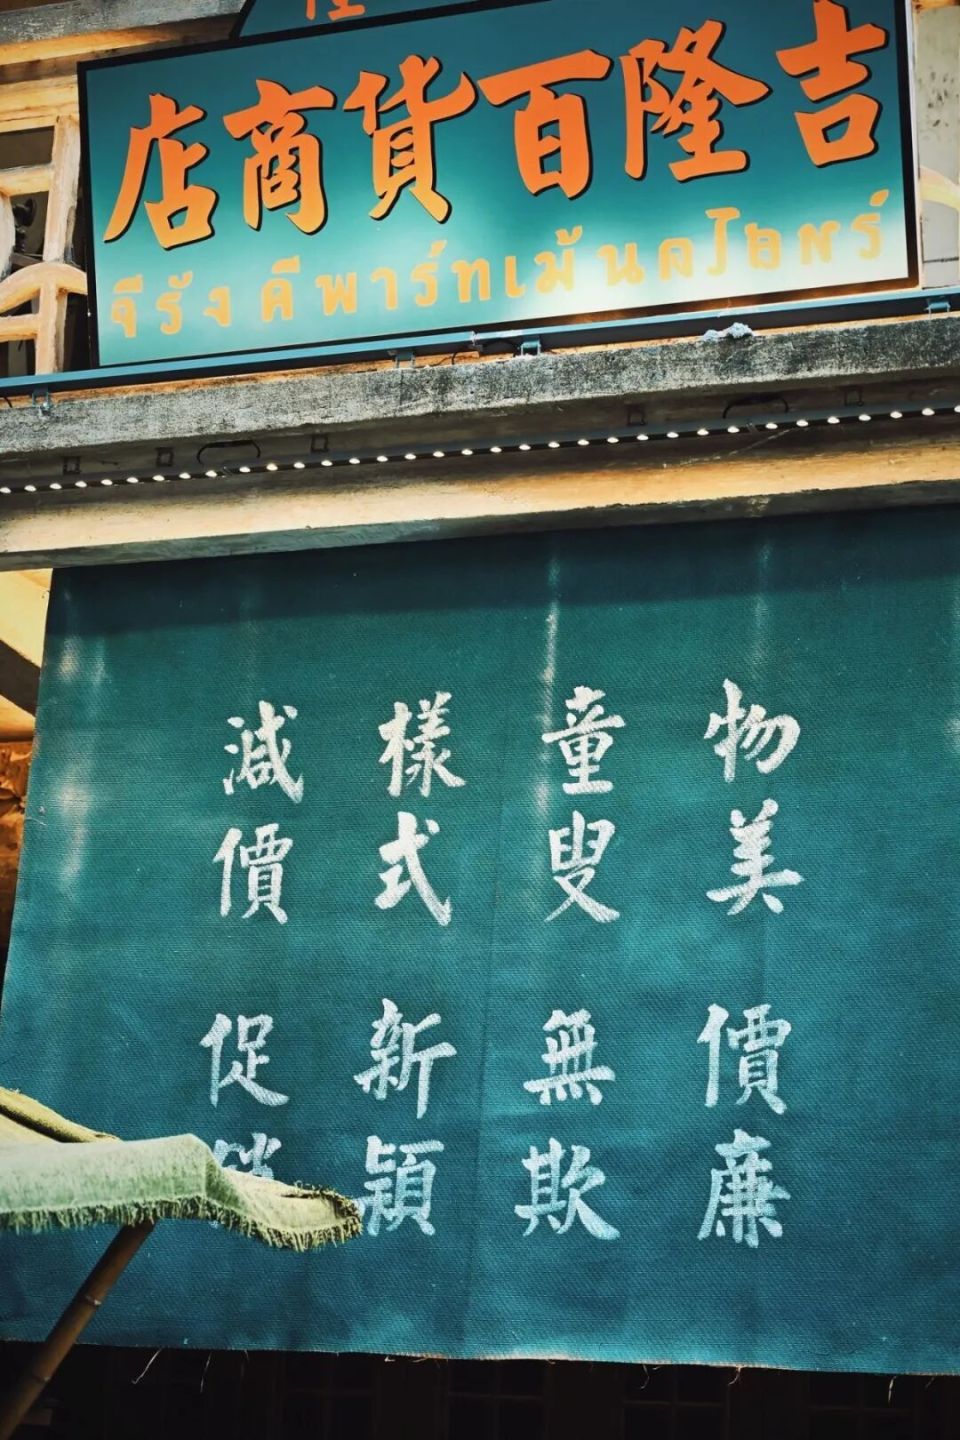 吉隆百貨商店
จีรัง คีพาร์ทเม้น
物美 價廉
童叟 無欺
樣式 新穎
減價 促